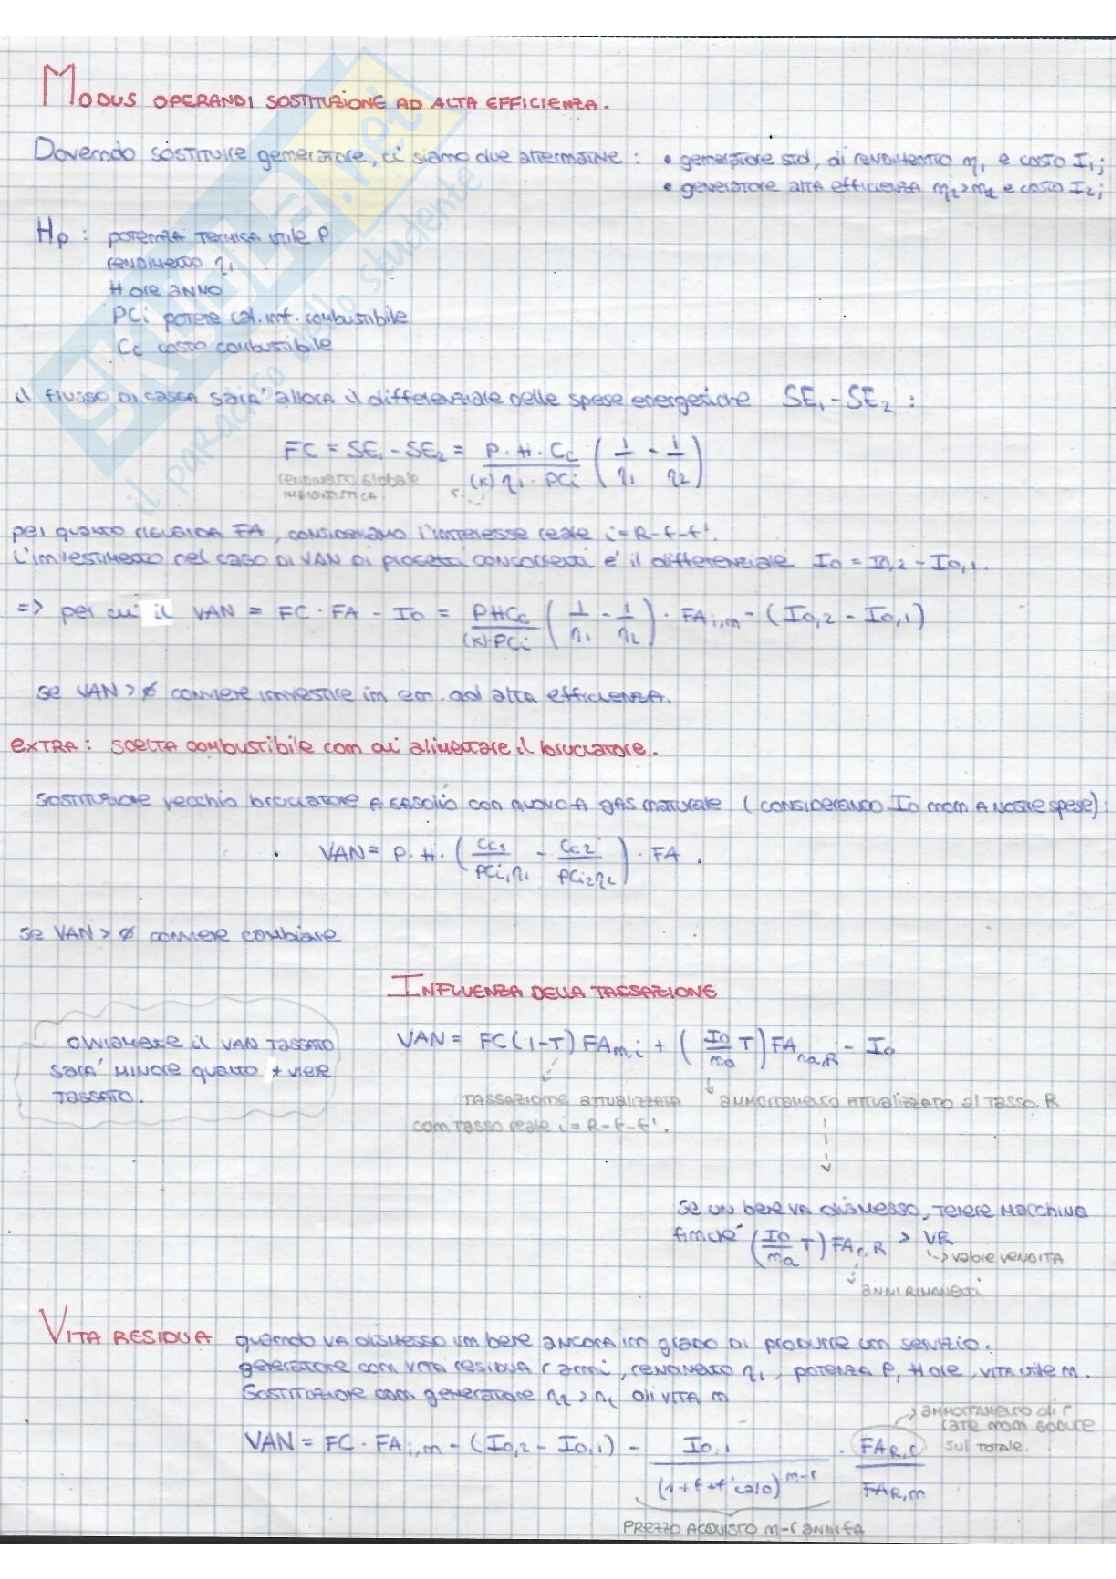 MODUS OPERANDI SOSTITUZIONE AD ALTA EFFICIENZA.
Dovendo sostituire generatore, ci siamo due alternative : • generatore std, di rendimento η1 e costo I1;
• generatore alta efficienza η2>η1 e costo I2;
Hp : potenza termica utile P
rendimento η1
H ore anno
PCi potere cal. inf. combustibile
Cc costo combustibile
il flusso di cassa sarà allora il differenziale delle spese energetiche SE1 - SE2 :
FC = SE1 - SE2 = P · H · Cc / (k) η1 · PCi ( 1/η1 - 1/η2 )
rendimento globale
impiantistica
per quanto riguarda FA, consideriamo l'interesse reale i = R-f-f'.
L'investimento nel caso di VAN di progetti concorrenti è il differenziale I0 = I0,2 - I0,1.
=> per cui il VAN = FC · FA - I0 = PHCc / (k) PCi ( 1/η1 - 1/η2 ) · FA i,m - ( I0,2 - I0,1 )
se VAN > ø conviene investire in em. ad alta efficienza.
EXTRA : SCELTA combustibile con cui alimentare il bruciatore.
sostituzione vecchio bruciatore a gasolio con nuovo a gas naturale ( considerando I0 non a nostre spese) :
VAN = P · H · ( Cc1 / PCi1 η1 - Cc2 / PCi2 η2 ) · FA .
se VAN > ø conviene cambiare
INFLUENZA DELLA TASSAZIONE
ovviamente il VAN tassato
sarà minore quanto + viene
tassato.
VAN = FC (1-T) FA m,i + ( I0/ma T ) FA na,R - I0
tassazione attualizzata
con tasso reale i = R-f-f'.
ammortamento attualizzato al tasso R
se un bene va dismesso, tenere macchina
finché ( I0/ma T ) FA r,R > VR
↳ valore vendita
anni rimanenti
VITA RESIDUA quando va dismesso un bene ancora in grado di produrre un servizio.
generatore con vita residua r anni, rendimento η1, potenza P, H ore, vita utile m.
Sostituzione con generatore η2 > η1 di vita m
ammortamento di r
rate non godute
sul totale.
VAN = FC · FA i,m - ( I0,2 - I0,1 ) - I0,1 / (1+f+f' calo)^m-r · FA R,r / FA R,m
PREZZO ACQUISTO m-r anni fa
SKUOLA.net
il paradiso dello studente